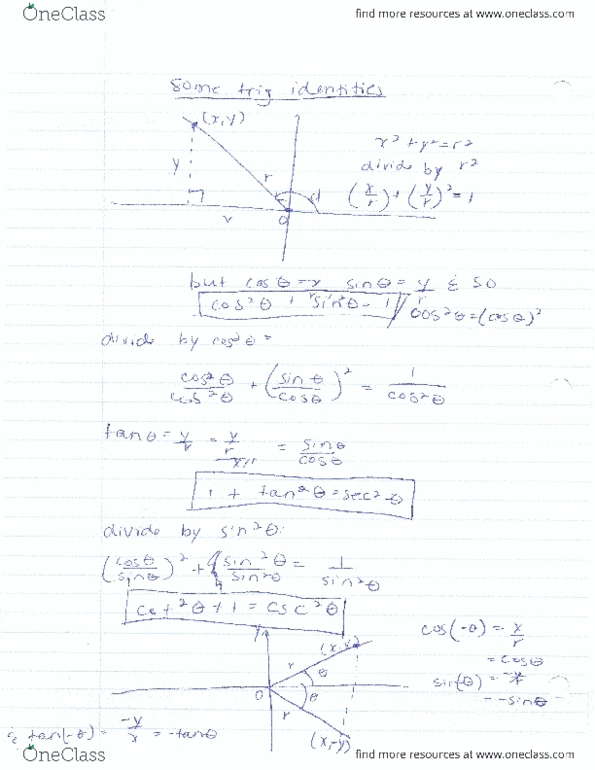 OneClass find more resources at www.oneclass.com
some trig identities
(x,y)
x² + y² = r²
divide by r²
y r
(x/r) + (y/r)² = 1
O
but cosθ = x sinθ = y & so
cos²θ + sin²θ = 1
cos²θ = (cosθ)²
divide by cos²θ =
cos²θ/cos²θ + (sinθ/cosθ)² = 1/cos²θ
tanθ = y/r = y/r / x/r = sinθ/cosθ
1 + tan²θ = sec²θ
divide by sin²θ:
(cosθ/sinθ)² + sin²θ/sin²θ = 1/sin²θ
cot²θ + 1 = csc²θ
y
(x,y)
cos(-θ) = x/r
= cosθ
r θ
O θ
sin(-θ) = -y/r
= -sinθ
r
& tan(-θ) = -y/x = -tanθ
(x,-y)
OneClass find more resources at www.oneclass.com